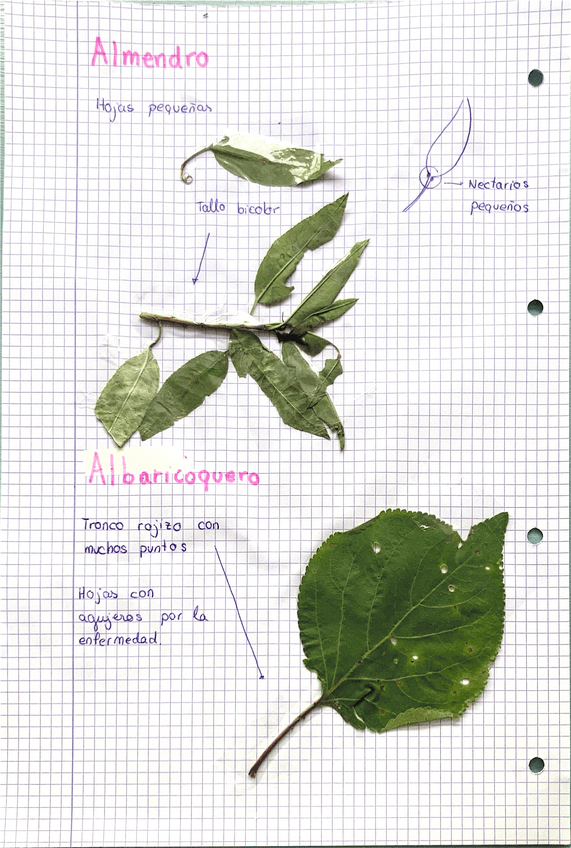 Almendro
Hojas pequeñas
Nectarios
pequeños
Tallo bicolor
Albaricoquero
Tronco rojizo con
muchos puntos
Hojas con
agujeros por la
enfermedad.